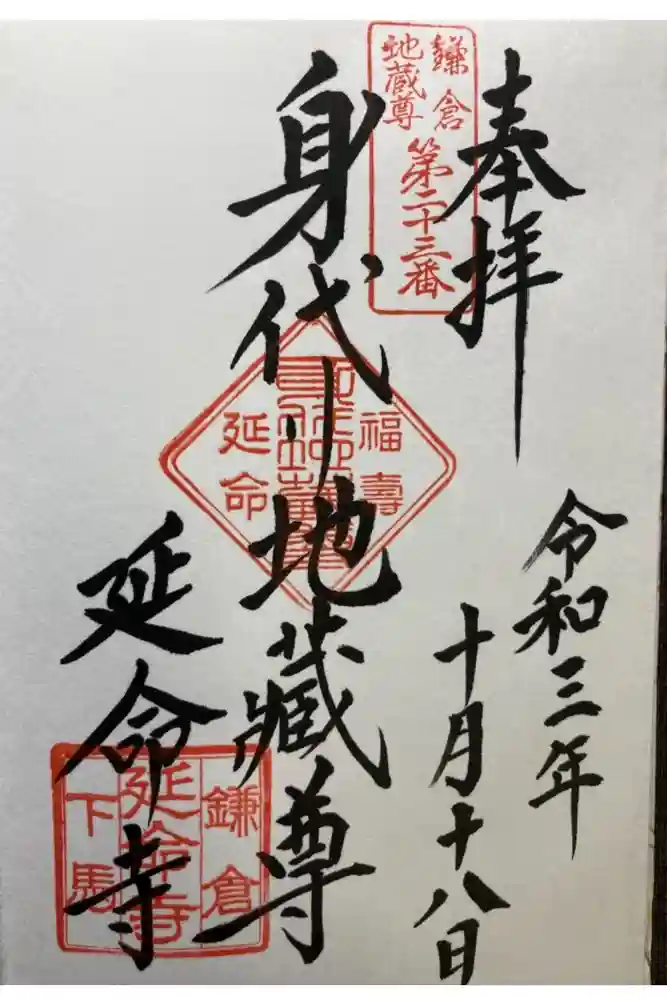 奉拝
令和三年
十月十八日
鎌倉
地蔵尊
第二十三番
身代り地蔵尊
福壽
延命
延命寺
鎌倉
延命寺
下馬